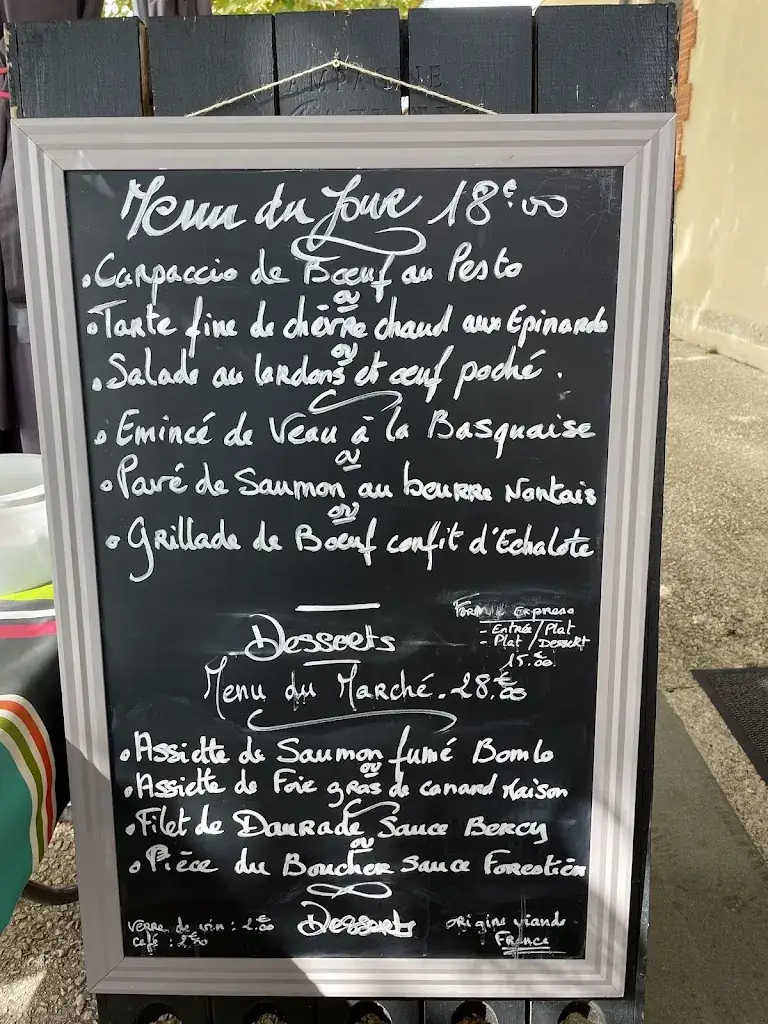 CHAMPAGNE
Menu du Jour 18€00
• Carpaccio de Bœuf au Pesto
ou
• Tarte fine de chèvre chaud aux Epinards
ou
• Salade au lardons et œuf poché.
• Emincé de Veau à la Basquaise
ou
• Pavé de Saumon au beurre Nantais
ou
• Grillade de Bœuf confit d'Echalote
Formule Express
- Entrée / Plat
- Plat / Dessert
15.€00
Desserts
Menu du Marché. 28,€00
• Assiette de Saumon fumé Bomlo
ou
• Assiette de Foie gras de canard Maison
• Filet de Daurade Sauce Bercy
ou
• Pièce du Boucher Sauce Forestière
Desserts
Verre de vin : 2.€00
Café : 2€00
origine viande
France